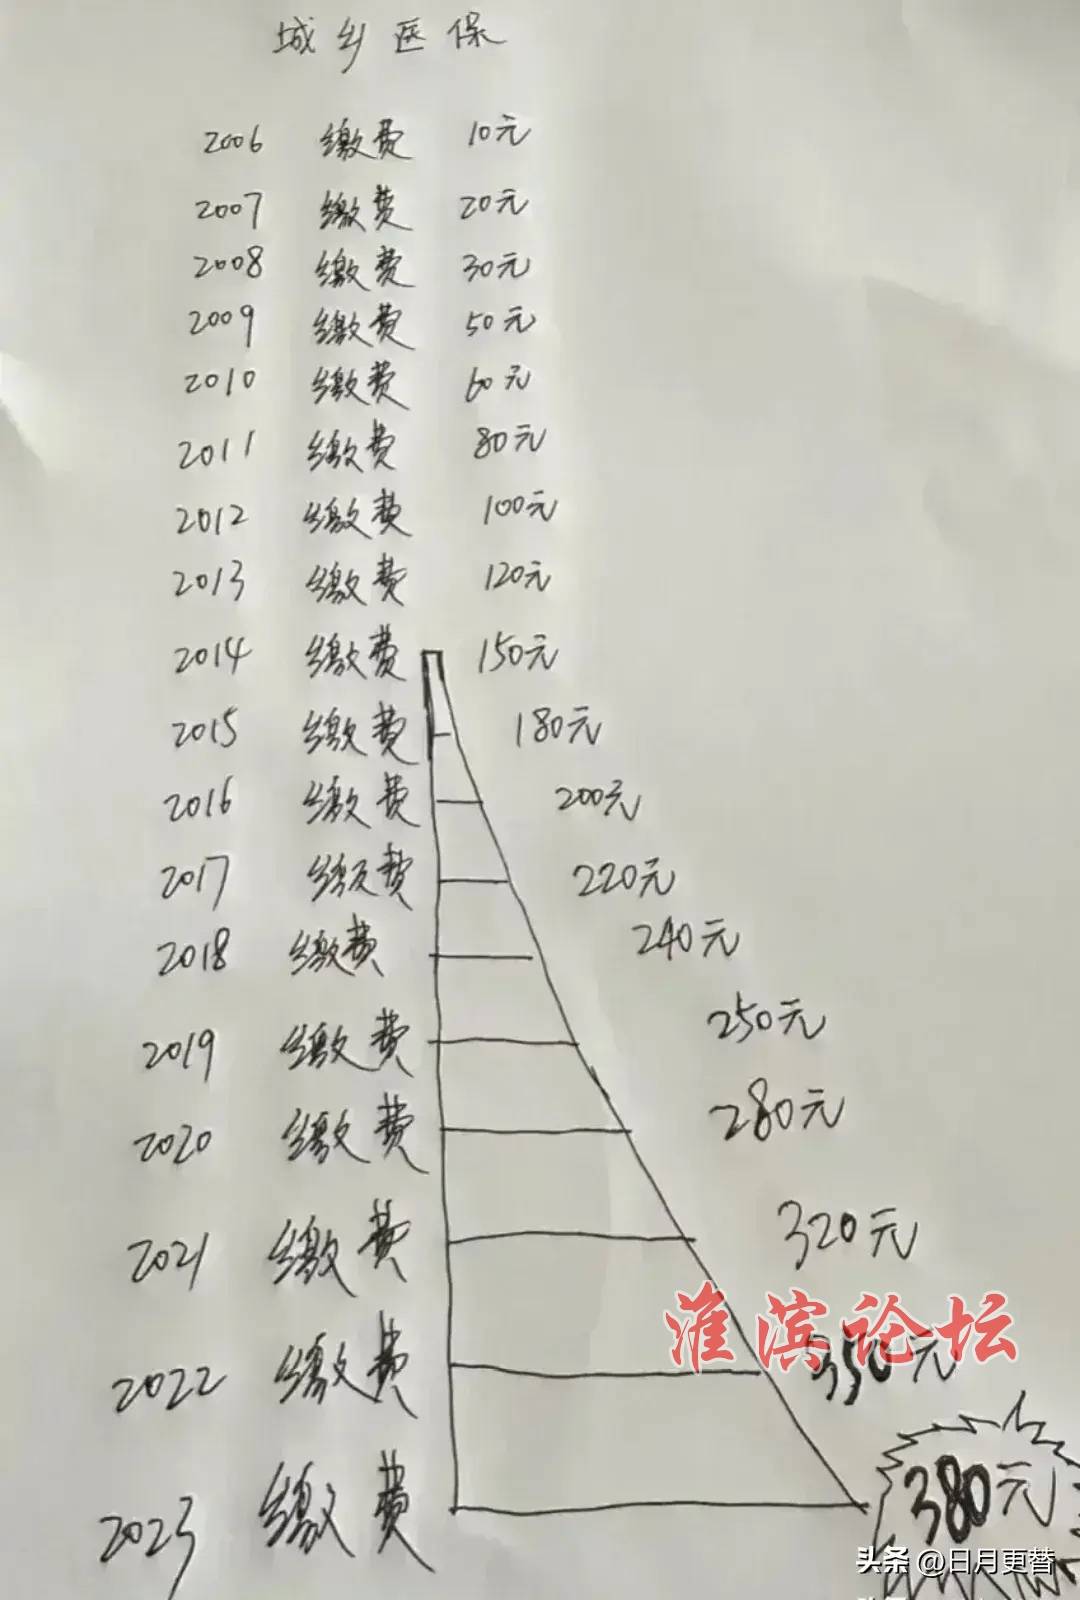 城乡医保
2006 缴费 10元
2007 缴费 20元
2008 缴费 30元
2009 缴费 50元
2010 缴费 60元
2011 缴费 80元
2012 缴费 100元
2013 缴费 120元
2014 缴费 150元
2015 缴费 180元
2016 缴费 200元
2017 缴费 220元
2018 缴费 240元
2019 缴费 250元
2020 缴费 280元
2021 缴费 320元
淮滨论坛
2022 缴费 350元
2023 缴费 380元
头条 @日月更替